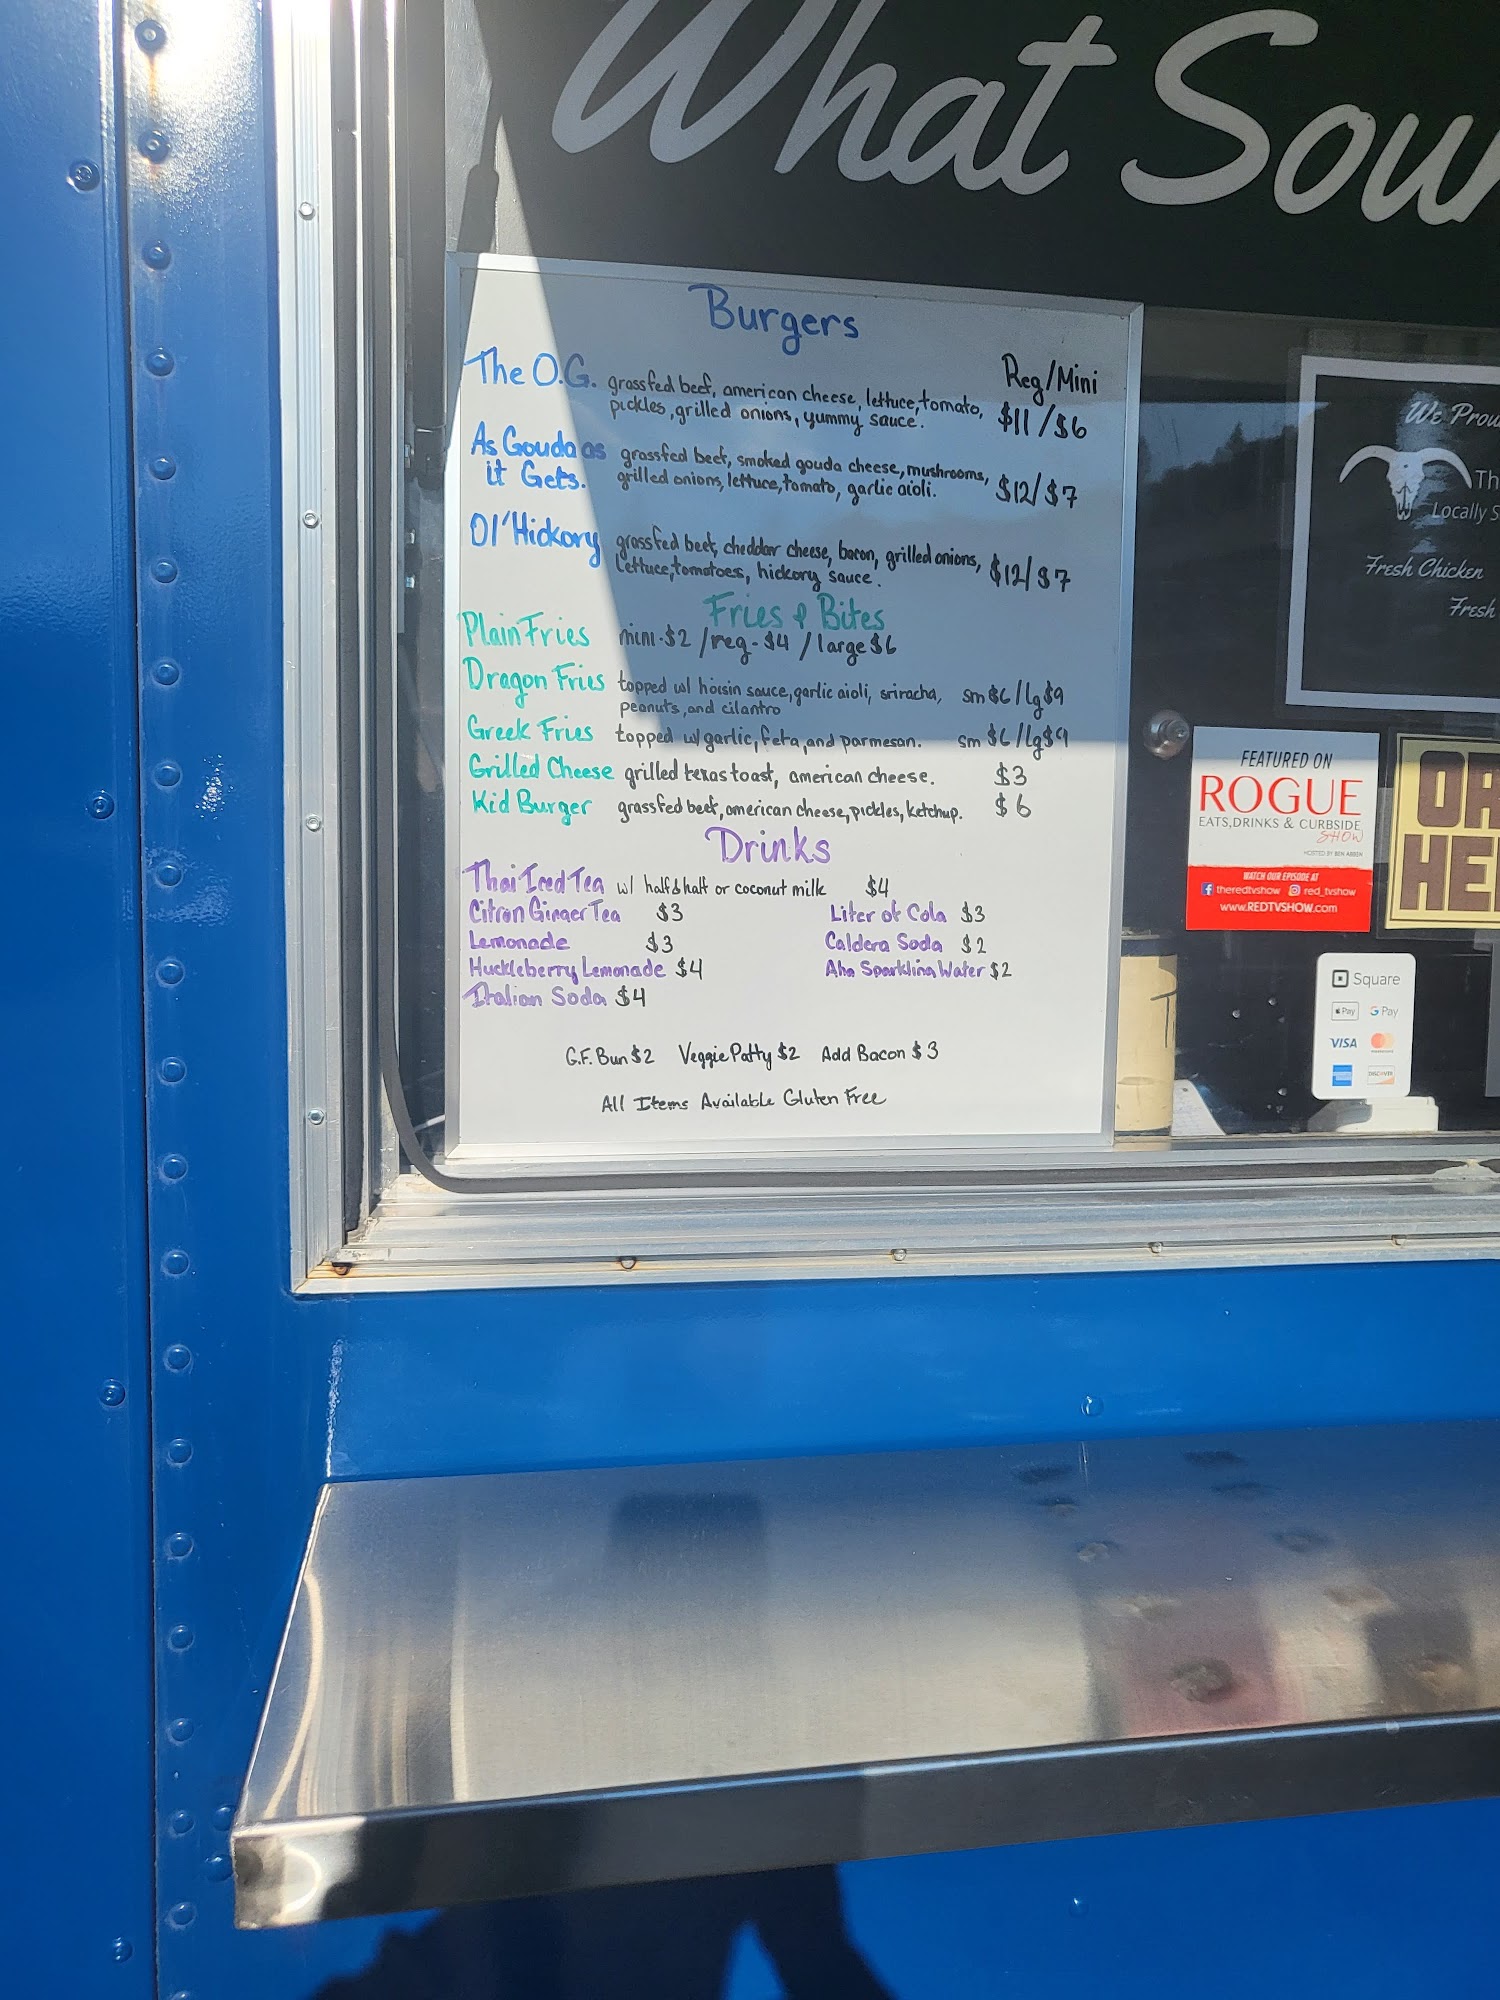 What Sou
Burgers
Reg/Mini
The O.G. grassfed beef, american cheese, lettuce, tomato,
pickles, grilled onions, yummy sauce. $11/$6
As Gouda as
it Gets. grassfed beef, smoked gouda cheese, mushrooms,
grilled onions, lettuce, tomato, garlic aioli. $12/$7
Ol' Hickory grassfed beef, cheddar cheese, bacon, grilled onions,
lettuce, tomatoes, hickory sauce. $12/$7
Fries & Bites
Plain Fries mini-$2 / reg-$4 / large $6
Dragon Fries topped w/ hoisin sauce, garlic aioli, sriracha,
peanuts, and cilantro sm $6/lg $9
Greek Fries topped w/ garlic, feta, and parmesan. sm $6/lg $9
Grilled Cheese grilled texas toast, american cheese. $3
Kid Burger grassfed beef, american cheese, pickles, ketchup. $6
Drinks
Thai Iced Tea w/ half & half or coconut milk $4
Citron Ginger Tea $3
Lemonade $3
Huckleberry Lemonade $4
Italian Soda $4
Liter of Cola $3
Caldera Soda $2
Aha Sparkling Water $2
G.F. Bun $2 Veggie Patty $2 Add Bacon $3
All Items Available Gluten Free
We Prou
Th
Locally S
Fresh Chicken
Fresh
FEATURED ON
ROGUE
EATS, DRINKS & CURBSIDE
SHOW
HOSTED BY BEN ABREN
WATCH OUR EPISODE AT
theredtvshow red_tvshow
www.REDTVSHOW.com
OR
HE
Square
Pay G Pay
VISA mastercard
DISCOVER